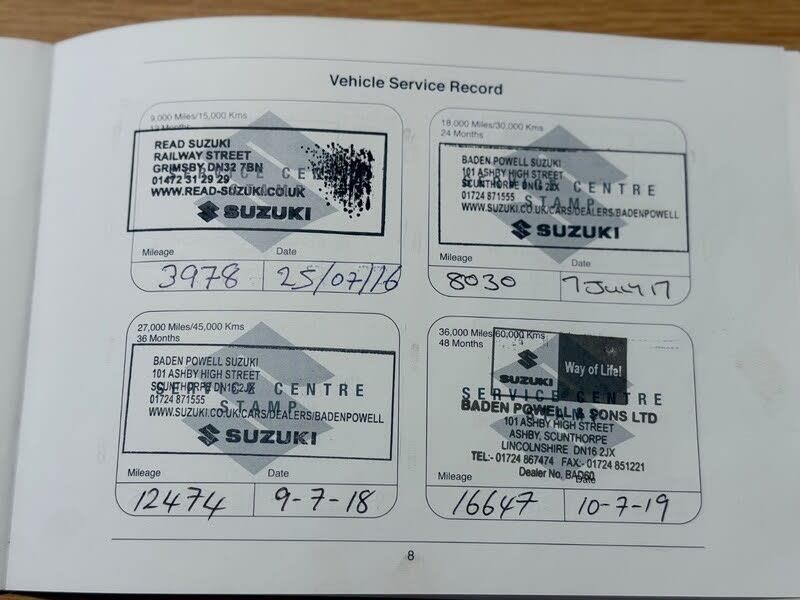 Vehicle Service Record
9,000 Miles/15,000 Kms
12 Months
READ SUZUKI
RAILWAY STREET
GRIMSBY DN32 7BN
01472 31 29 29
WWW.READ-SUZUKI.CO.UK
SUZUKI
SERVICE CENTRE
STAMP
Mileage
Date
3978
25/07/16
18,000 Miles/30,000 Kms
24 Months
BADEN POWELL SUZUKI
101 ASHBY HIGH STREET
SCUNTHORPE DN16 2JX
01724 871555
WWW.SUZUKI.CO.UK/CARS/DEALERS/BADENPOWELL
SUZUKI
SERVICE CENTRE
STAMP
Mileage
Date
8030
7 JULY 17
27,000 Miles/45,000 Kms
36 Months
BADEN POWELL SUZUKI
101 ASHBY HIGH STREET
SCUNTHORPE DN16 2JX
01724 871555
WWW.SUZUKI.CO.UK/CARS/DEALERS/BADENPOWELL
SUZUKI
SERVICE CENTRE
STAMP
Mileage
Date
12474
9-7-18
36,000 Miles/60,000 Kms
48 Months
SUZUKI
Way of Life!
SERVICE CENTRE
BADEN POWELL & SONS LTD
101 ASHBY HIGH STREET
ASHBY, SCUNTHORPE
LINCOLNSHIRE DN16 2JX
TEL:- 01724 867474 FAX:- 01724 851221
Dealer No, BAD60
Mileage
Date
16647
10-7-19
8